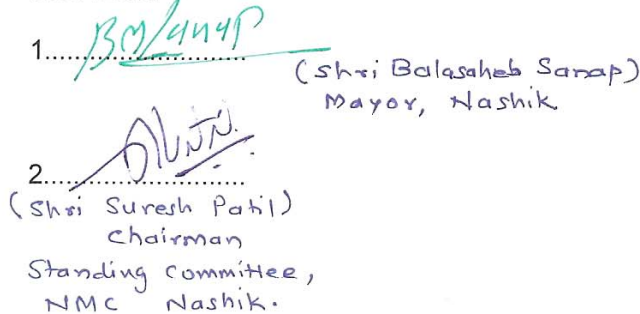 1.......................
(Shri Balasaheb Sanap)
Mayor, Nashik
2.......................
(Shri Suresh Patil)
Chairman
Standing Committee,
NMC Nashik.